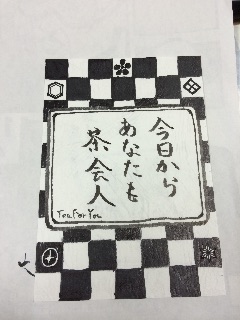 今日から
あなたも
茶会人
Tea For You